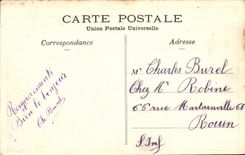 CARTE POSTALE
Union Postale Universelle
Correspondance
Adresse
Remerciements
Bien le bonjour
Ch. Burel
Mr Charles Burel
Chez Mr Robine
66 rue Martainville 68
Rouen
S. Inf